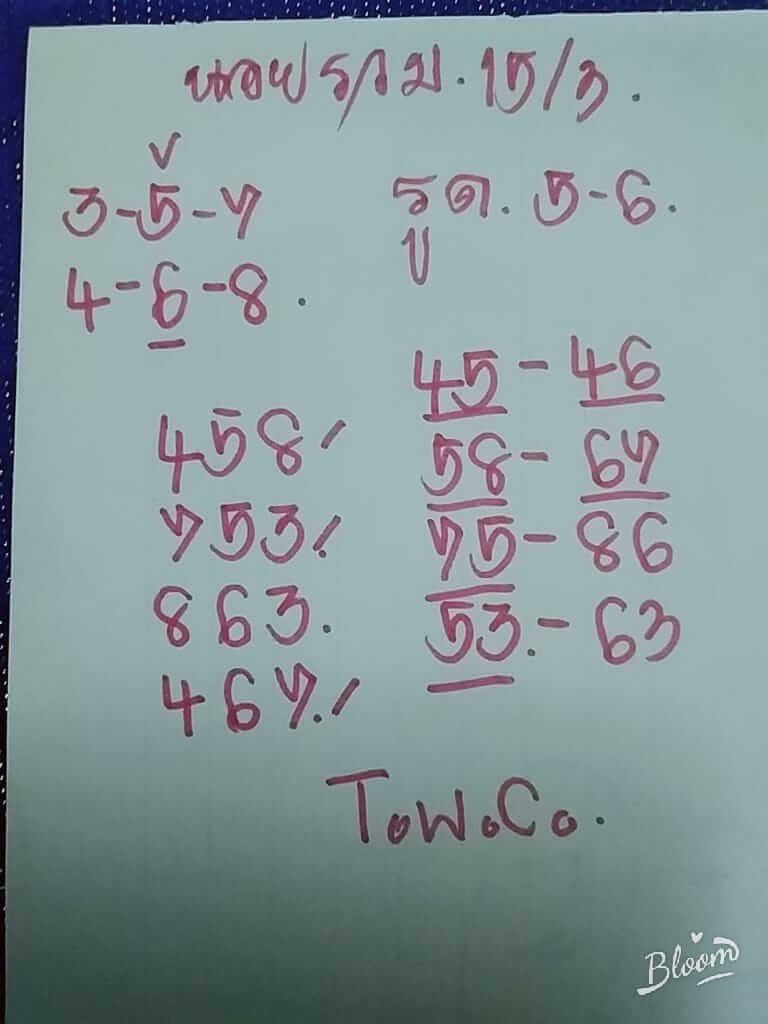 15/3.
3-5-7
4-6-8.
รูด. 5-6.
458/
753/
863.
467./
45-46
58-67
75-86
53.-63
ToWoCo.
Bloom